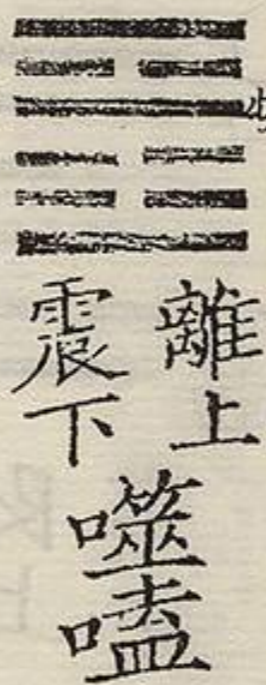 離上
震下
噬嗑